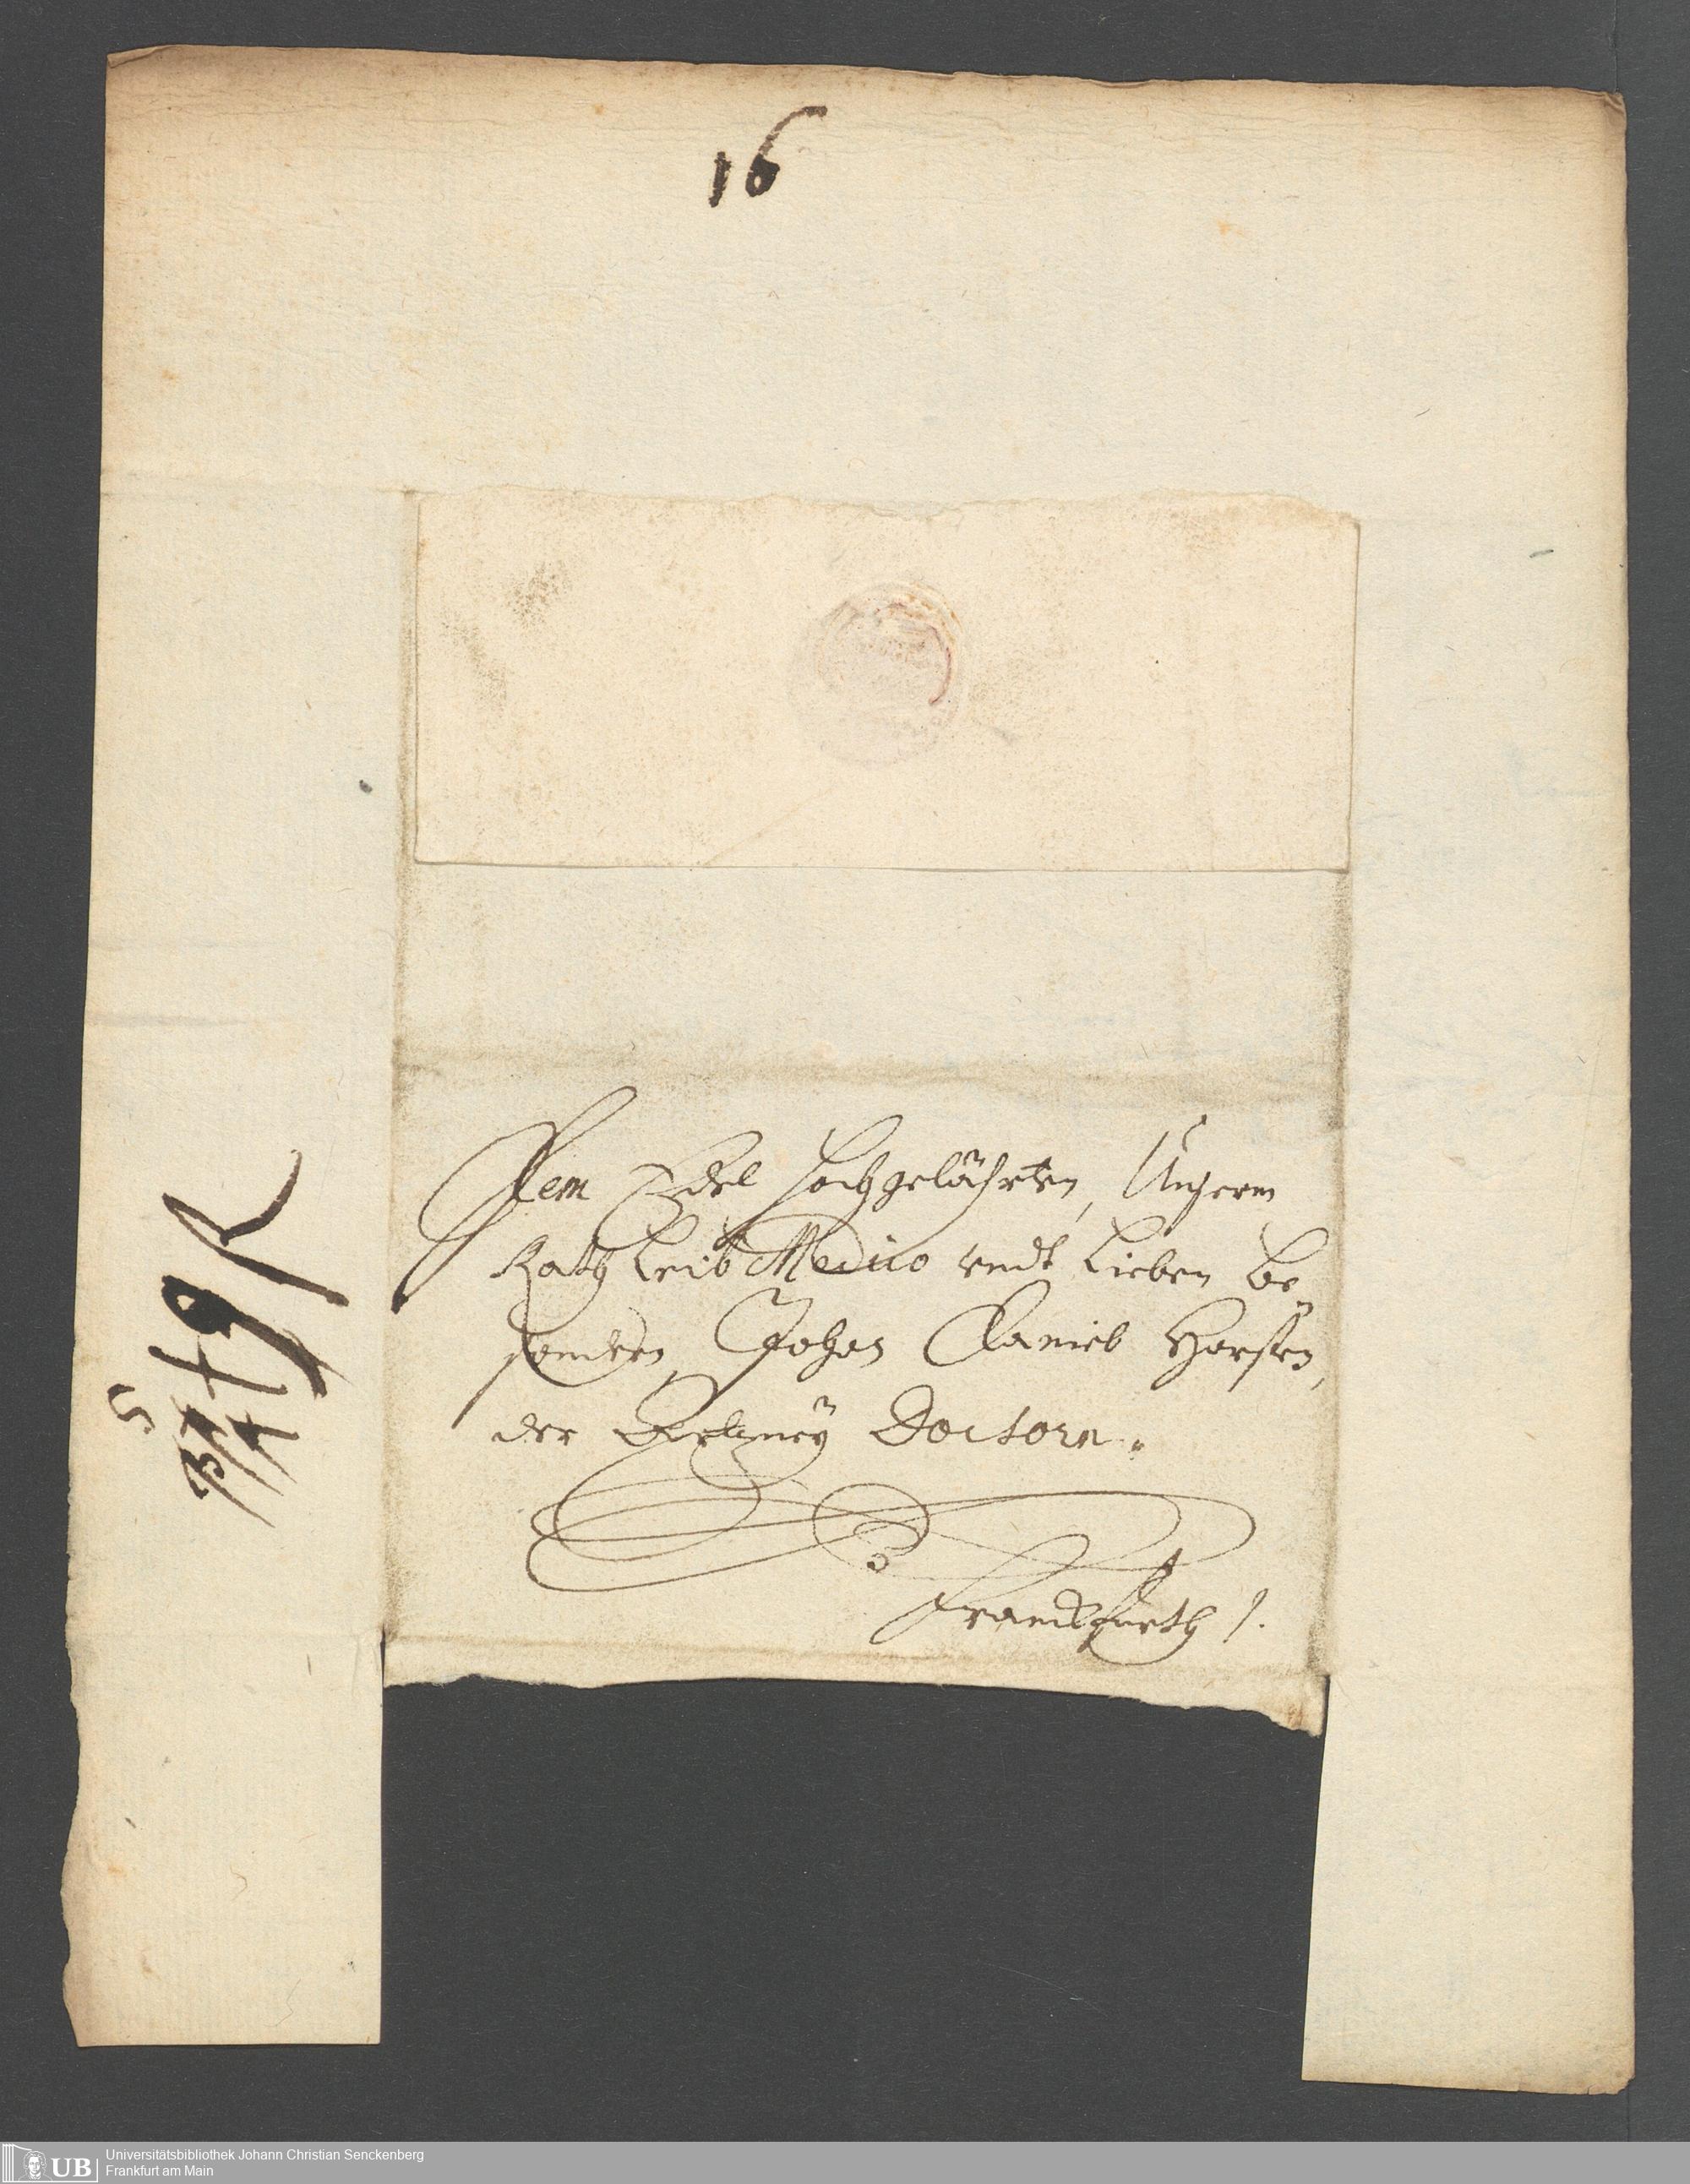 16
Dem Edel Hochgelährten, Unserm
Rath Leib Medico vndt Lieben be„
sondern, Johan Daniel Horsten,
der Artzney Doctorn.
Franckfurth /.
Universitätsbibliothek Johann Christian Senckenberg
UB Frankfurt am Main